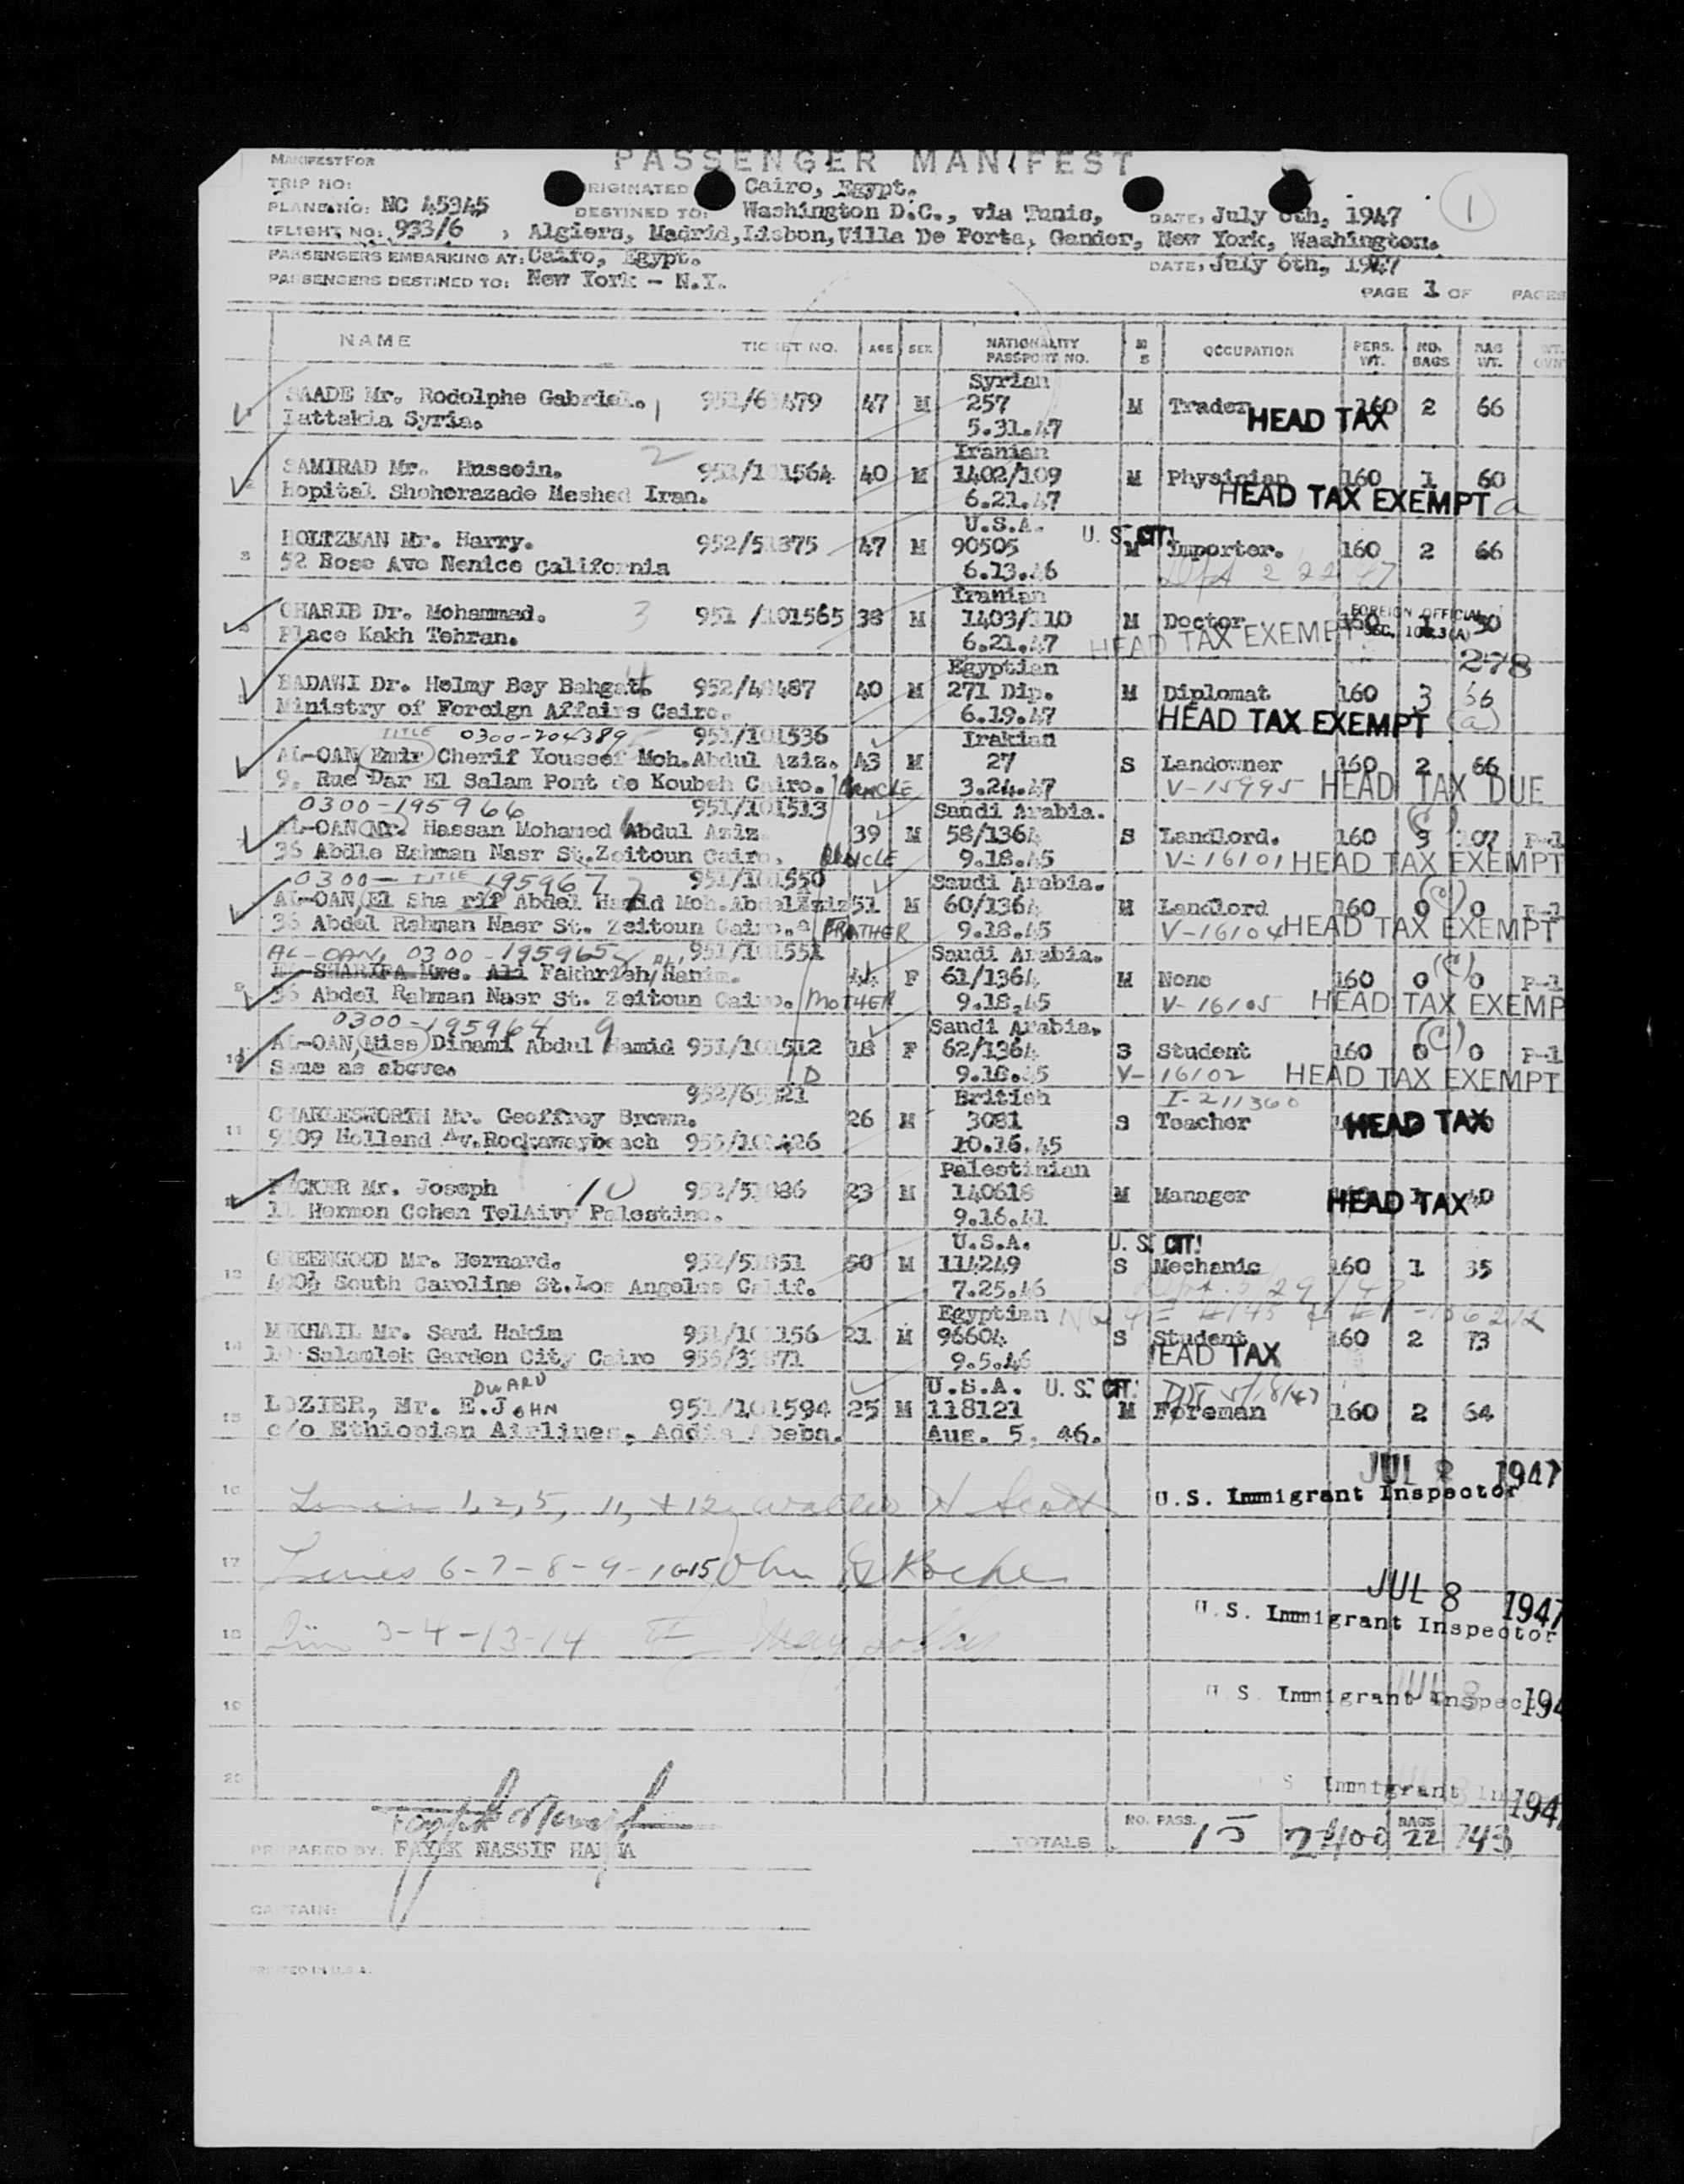 PASSENGER MANIFEST
MANIFEST FOR
TRIP NO: ORIGINATED Cairo, Egypt.
PLANE NO: NC 45345 DESTINED TO: Washington D.C., via Tunis, DATE, July 6th, 1947 1
FLIGHT NO: 933/6 , Algiers, Madrid, Lisbon, Villa De Porta, Gander, New York, Washington.
PASSENGERS EMBARKING AT: Cairo, Egypt. DATE, July 6th, 1947
PASSENGERS DESTINED TO: New York - N.Y.
PAGE 1 OF PAGES
NAME TICKET NO. AGE SEX NATIONALITY PASSPORT NO. M S OCCUPATION PERS. WT. NO. BAGS BAG WT.
Syrian
SAADE Mr. Rodolphe Gabriel. 1 47 M 257 M Trader 160 2 66
Lattakia Syria. 5.31.47 HEAD TAX
Iranian
SAMIRAD Mr. Hussein. 2 40 M 1402/109 M Physician 160 1 60
Hopital Sheherazade Meshed Iran. 6.21.47 HEAD TAX EXEMPT a
U.S.A. U. S. CIT!
3 HOLTZMAN Mr. Harry. 47 M 90505 M Importer. 160 2 66
52 Bose Ave Nenice California 6.13.46
Iranian
GHARIB Dr. Mohammad. 3 951 /101565 38 M 1403/110 M Doctor 160 1 30
FOREIGN OFFICIAL
Place Kakh Tehran. 6.21.47 HEAD TAX EXEMPT
278
Egyptian
BADAWI Dr. Helmy Bey Bahgat. 4 40 M 271 Dip. M Diplomat 160 3 66
Ministry of Foreign Affairs Cairo. 6.19.47 HEAD TAX EXEMPT (a)
TITLE 0300-204389 951/101536 Irakian
AL-OAN Emir Cherif Youssef Moh. Abdul Aziz. 43 M 27 S Landowner 160 2 66
9, Rue Dar El Salam Pont de Koubeh Cairo. UNCLE 3.24.47 V-15995 HEAD TAX DUE
0300-195966 951/101513 Saudi Arabia. (c)
AL-OAN Mr. Hassan Mohamed Abdul Aziz 39 M 58/1364 S Landlord. 160 9 107 P-1
36 Abdle Rahman Nasr St. Zeitoun Cairo. UNCLE 9.18.45 V-16101 HEAD TAX EXEMPT
0300- TITLE 195967 7 951/101550 Saudi Arabia. (c)
AL-OAN, El Sha rif Abdel Hamid Moh. Abdel Aziz 51 M 60/1364 M Landlord 160 0 0 P-1
36 Abdel Rahman Nasr St. Zeitoun Cairo. FATHER 9.18.45 V-16104 HEAD TAX EXEMPT
AL-OAN, 0300-195965 951/101551 Saudi Arabia. (c)
EL-SHARIFA Mrs. Ali Fakhrieh Hanim. 44 F 61/1364 M None 160 0 0 P-1
9 36 Abdel Rahman Nasr St. Zeitoun Cairo. MOTHER 9.18.45 V-16105 HEAD TAX EXEMP
0300-195964 9 Saudi Arabia. (c)
10 AL-OAN, Miss Dinami Abdul Hamid 951/101512 18 F 62/1364 S Student 160 0 0 P-1
Same as above. D 9.18.45 V-16102 HEAD TAX EXEMPT
British I-211360
CHARLESWORTH Mr. Geoffrey Brown. 26 M 3081 S Teacher HEAD TAX
11 9109 Holland Av. Rockawaybeach 10.16.45
Palestinian
PECKER Mr. Joseph 10 23 M 140618 M Manager HEAD TAX
11 Hermon Cohen TelAivv Palestine. 9.16.41
U.S.A. U. S. CIT!
GREENGOOD Mr. Bernard. 50 M 114249 S Mechanic 160 1 35
13 4004 South Caroline St. Los Angeles Calif. 7.25.46
Egyptian
MEKHAIL Mr. Sami Hakim 21 M 96604 S Student 160 2 73
14 10 Salamlek Garden City Cairo 9.5.46 HEAD TAX
DWARD U.S.A. U. S. CIT!
LOZIER, Mr. E. JOHN 951/101594 25 M 118121 M Foreman 160 2 64
15 c/o Ethiopian Airlines, Addis Abeba. Aug. 5, 46.
JUL 8 1947
16 Lines 1, 2, 5, 11, + 12, Scott U.S. Immigrant Inspector
17 Lines 6-7-8-9-10-15 John Roche
JUL 8 1947
U.S. Immigrant Inspector
18 3-4-13-14
19 JUL 8 194
U S Immigrant Inspect
20
Immigrant In 194
TOTALS NO. PASS. 15 2400 BAGS 22 743
PREPARED BY: FAYEK NASSIF HANNA
CAPTAIN:
PRINTED IN U.S.A.